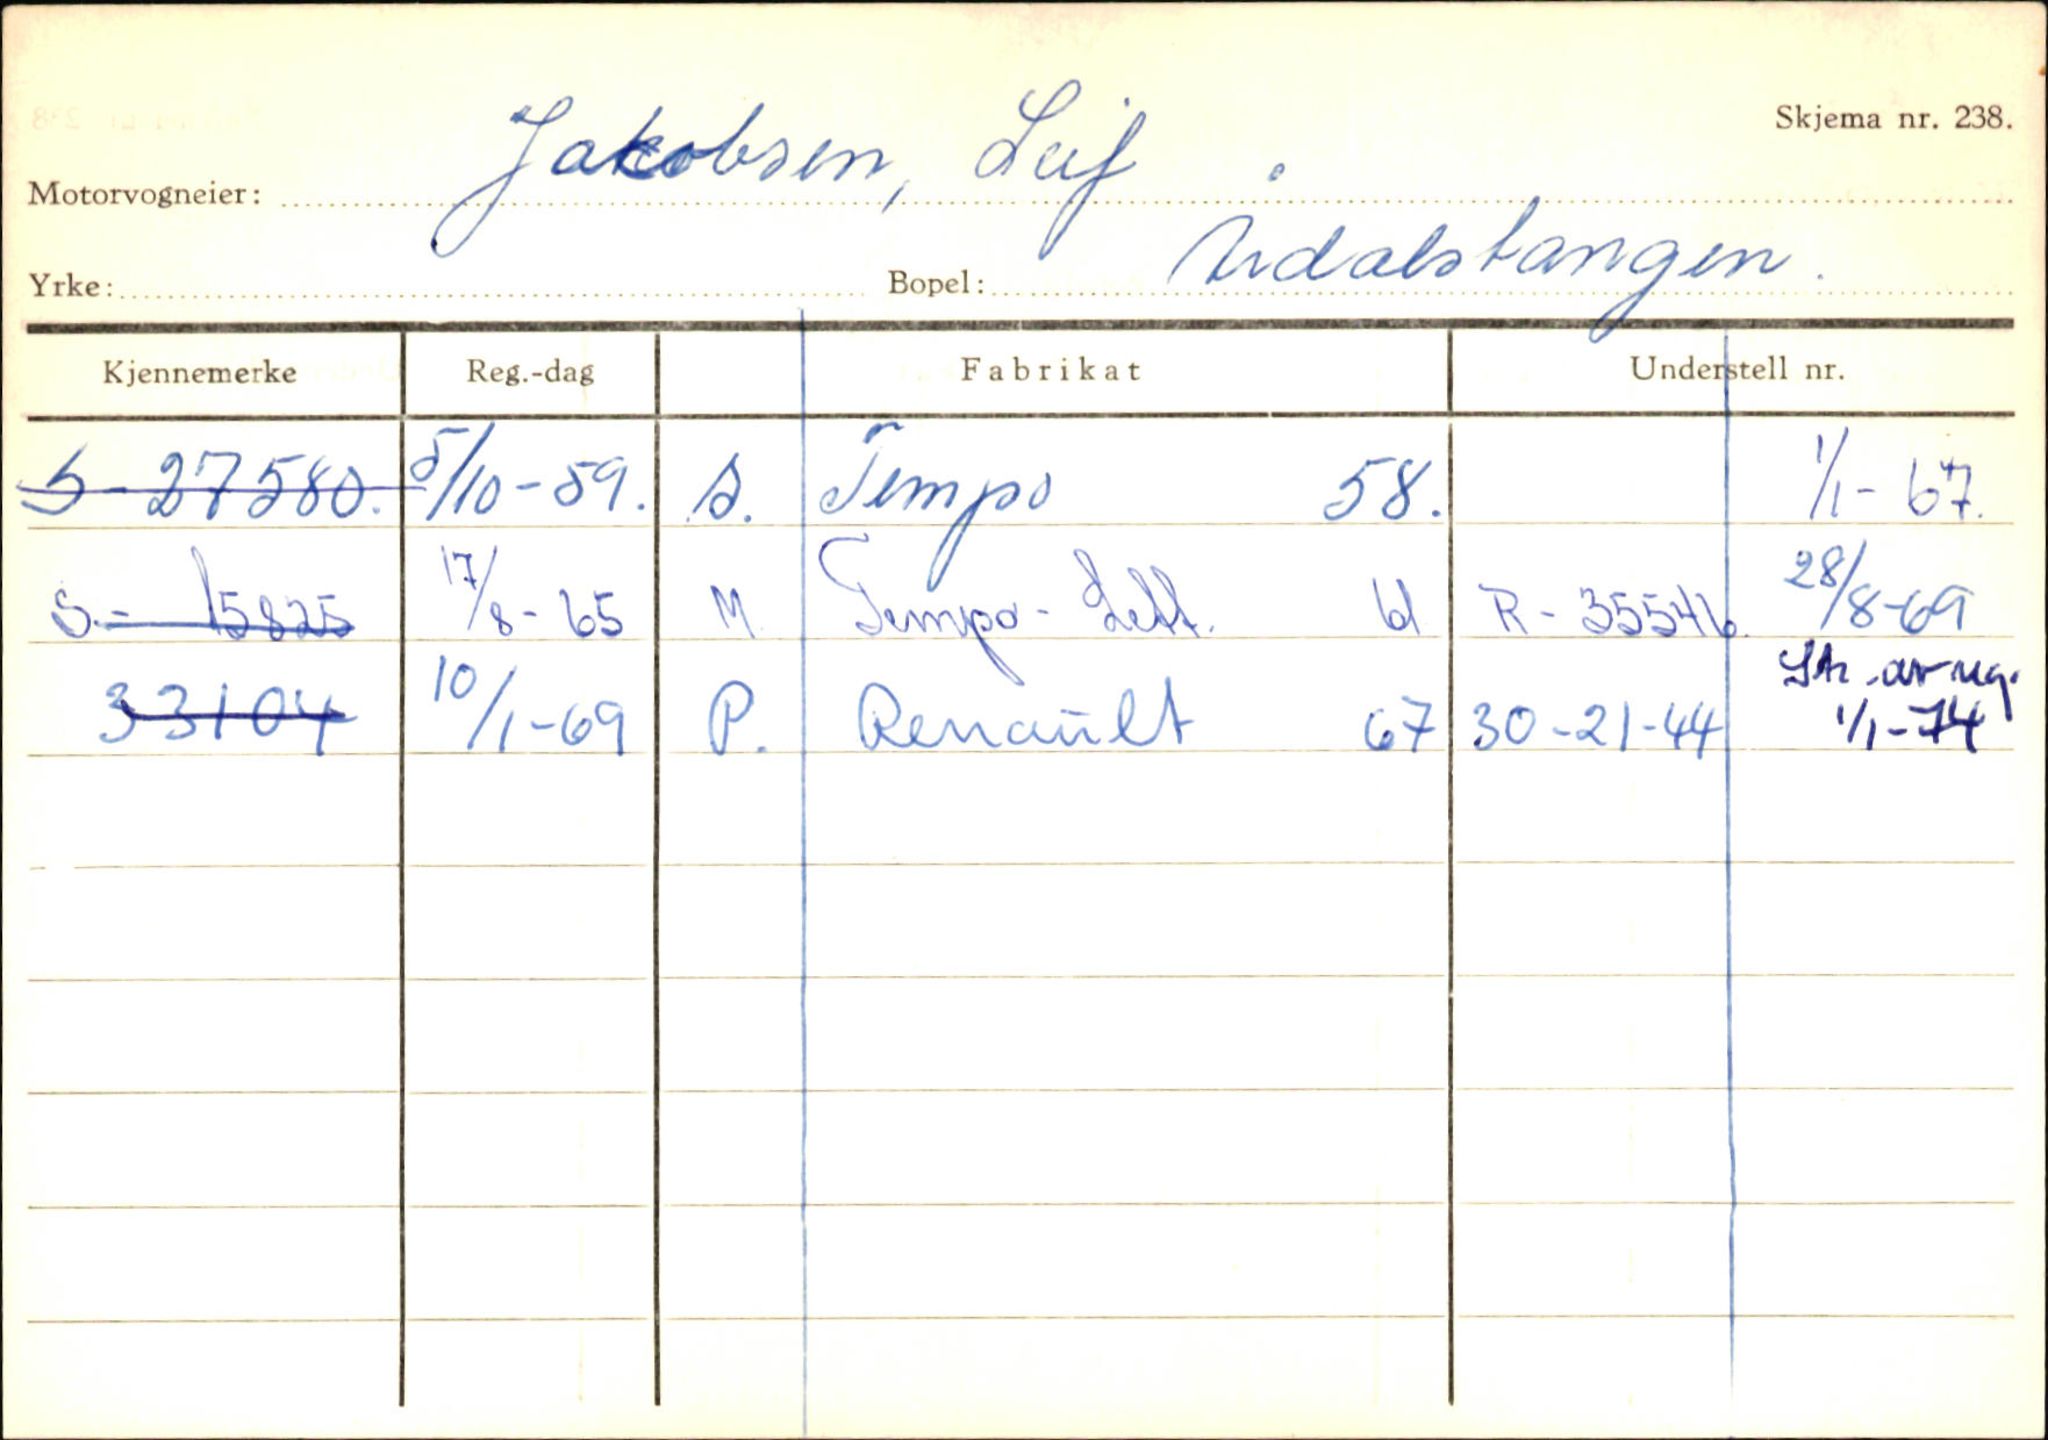 Skjema nr. 238.
Motorvogneier: Jakobsen, Leif
Yrke: Bopel: Årdalstangen.
Kjennemerke Reg.-dag Fabrikat Understell nr.
S-27580. 5/10-59. S. Tempo 58. 1/1-67.
S.- 15825 17/8-65 M. Tempo-Lett. 61 R-35546. 28/8-69
33104 10/1-69 P. Renault 67 30-21-44 Str. av reg. 1/1-74